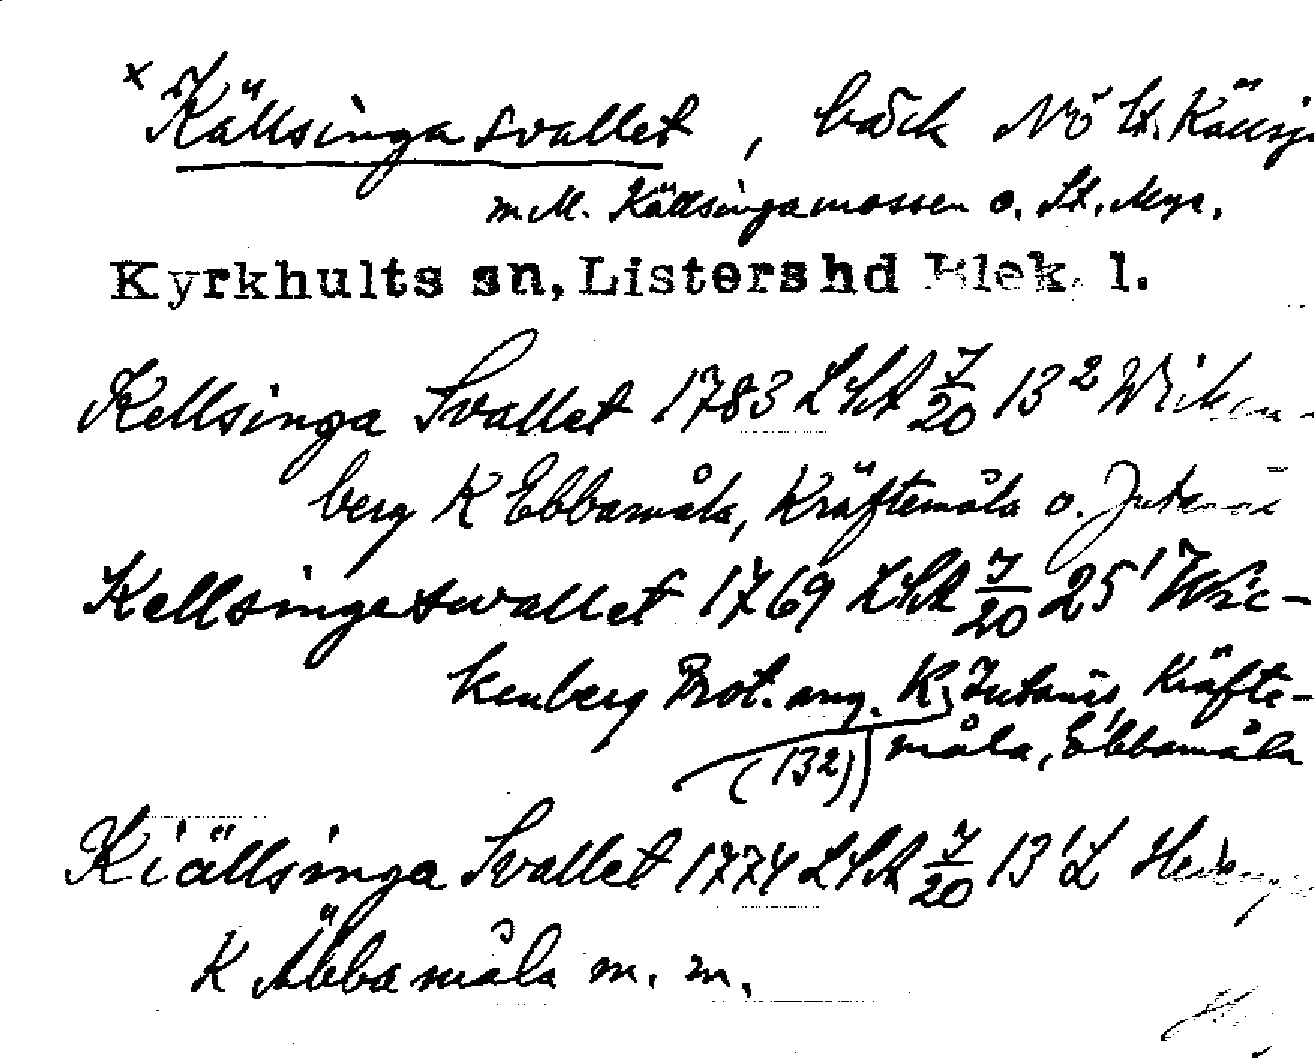 x Källsinga svallet, bäck NÖ St. Källsj
m.M. Källsingamossen o. St. Myr.
Kyrkhults sn, Listershd Blek. l.
Kellsinga Svallet 1783 LSA 7/20 13² Wicken-
berg K Ebbamåla, Kräftemåla o. Jutanäs
Kellsingeswallet 1769 LSA 7/20 25¹ Wic-
kenberg Prot. ang. K Jutanäs, Kräfte-
(132) måla, Ebbamåla
Kiällsinga Svallet 1774 LSA 7/20 13¹ L
K Äbbamåla m. m.